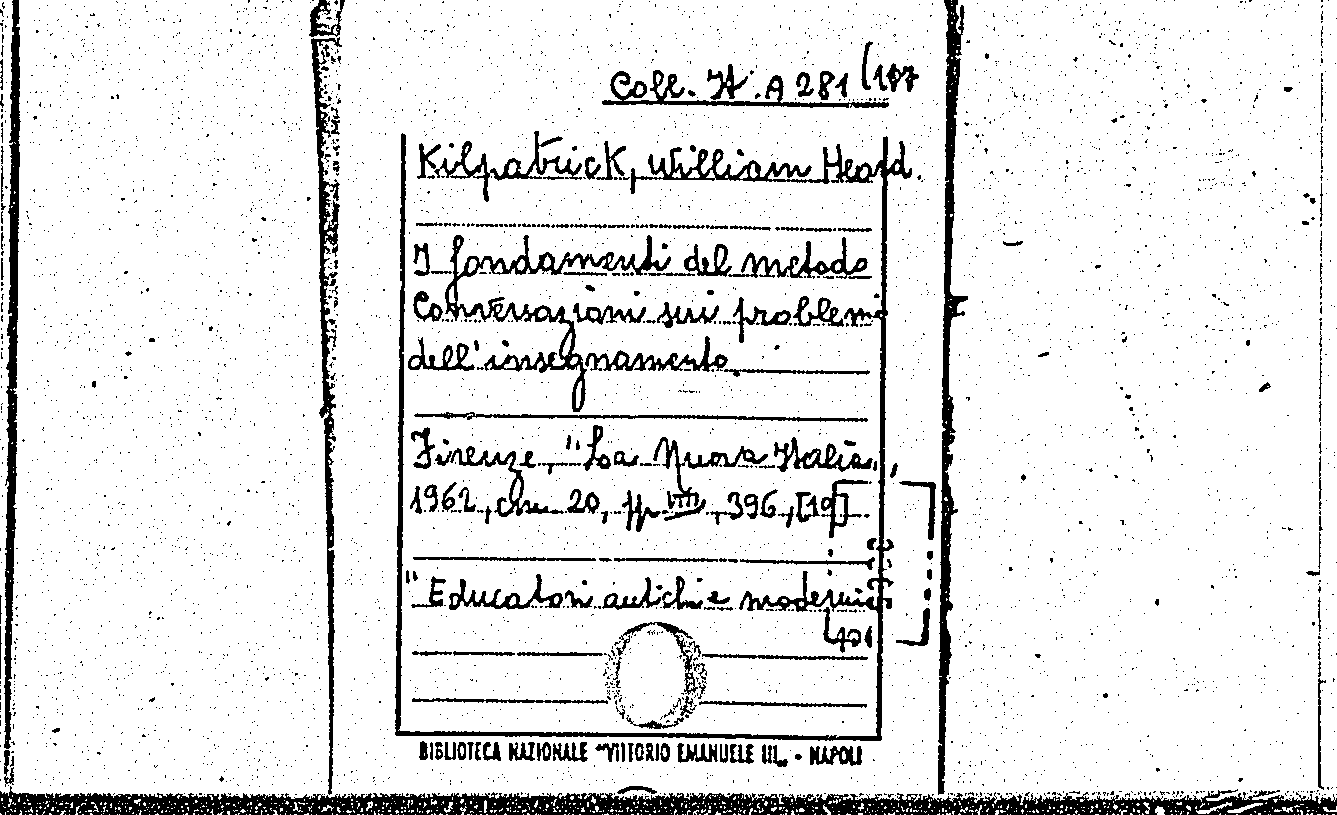 Coll. It. A 281 (107
Kilpatrick, William Heard.
I fondamenti del metodo
Conversazioni sui problemi
dell'insegnamento.
Firenze, "La Nuova Italia",
1962, cm. 20, pp VIII, 396, [19]
"Educatori antichi e moderni
BIBLIOTECA NAZIONALE "VITTORIO EMANUELE III" - NAPOLI